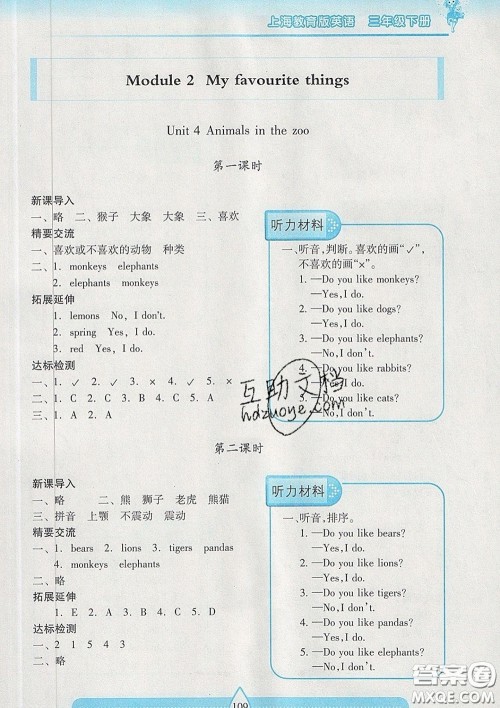 上海教育版英语 三年级下册
Module 2 My favourite things
Unit 4 Animals in the zoo
第一课时
新课导入
一、略 二、猴子 大象 大象 三、喜欢
精要交流
一、喜欢或不喜欢的动物 种类
二、1. monkeys elephants
2. elephants monkeys
拓展延伸
1. lemons No, I don't.
2. spring Yes, I do.
3. red Yes, I do.
达标检测
一、1. ✓ 2. ✓ 3. × 4. ✓ 5. ×
二、1. C 2. C 3. B 4. A 5. B
三、1. A 2. A
听力材料
一、听音,判断。喜欢的画“✓”,
不喜欢的画“×”。
1. —Do you like monkeys?
—Yes, I do.
2. —Do you like dogs?
—Yes, I do.
3. —Do you like elephants?
—No, I don't.
4. —Do you like rabbits?
—Yes, I do.
5. —Do you like cats?
—No, I don't.
互助文档
hdzuoye.com
第二课时
新课导入
一、略 二、熊 狮子 老虎 熊猫
三、拼音 上颚 不震动 震动
精要交流
一、1. bears 2. lions 3. tigers pandas
4. monkeys elephants
二、略
拓展延伸
1. E 2. A 3. B 4. C 5. D
达标检测
一、2 1 5 4 3
二、略
听力材料
一、听音,排序。
1. —Do you like bears?
—Yes, I do.
2. —Do you like lions?
—No, I don't.
3. —Do you like tigers?
—No, I don't.
4. —Do you like pandas?
—Yes, I do.
5. —Do you like elephants?
—No, I don't.
109
答案圈
MXQE.COM